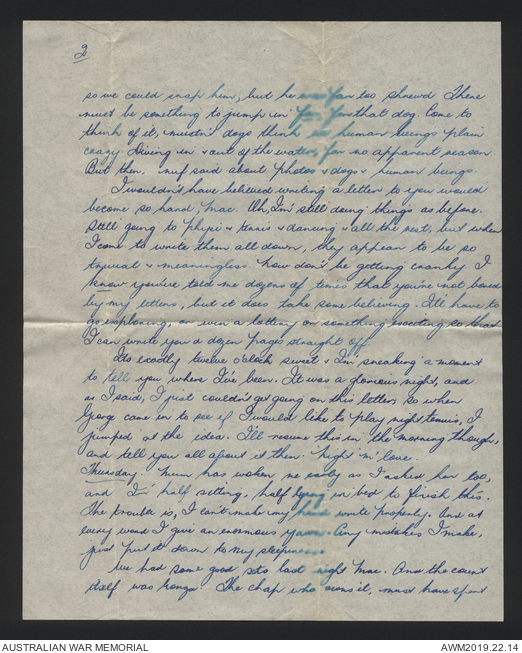 2
so we could snap him, but he was far too shrewd. There
must be something to jump in for, for that dog. Come to
think of it, mustn't dogs think us human beings plain
crazy. Diving in & out of the water, for no apparent reason.
But then, nuf said about photos & dogs & human beings.
I wouldn't have believed writing a letter to you would
become so hard, Mac. Oh, I'm still doing things as before.
Still going to phys & tennis & dancing & all the rest, but when
I come to write them all down, they appear to be so
trivial & meaningless. Now don't be getting cranky I
know you've told me dozens of times that you're not bored
by my letters, but it does take some believing. I'll have to
go exploring, or win a lottery or something exciting so that
I can write you a dozen pages straight off.
Its exactly twelve o'clock sweet & I'm sneaking a moment
to tell you where I've been. It was a glorious night, and
as I said, I just couldn't get going on this letter, so when
George came in to see if I would like to play night tennis, I
jumped at the idea. I'll resume this in the morning though,
and tell you all about it then. Night 'n' love.
Thursday. Mum has woken me early as I asked her too,
and I'm half sitting, half lying in bed to finish this.
The trouble is, I can't make my hand write properly. And at
every word I give an enormous yawn. Any mistakes I make,
just put it down to my sleepiness.
We had some good sets last night Mac. And the court
itself was bonza. The chap who owns it, must have spent
AUSTRALIAN WAR MEMORIAL
AWM2019.22.14